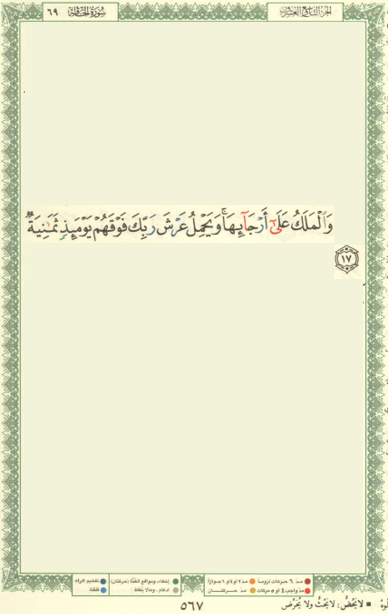 سُورَةُ الْحَاقَّةِ ٦٩
الجزء التاسع والعشرون
وَالْمَلَكُ عَلَىٰ أَرْجَائِهَا ۚ وَيَحْمِلُ عَرْشَ رَبِّكَ فَوْقَهُمْ يَوْمَئِذٍ ثَمَانِيَةٌ
١٧
مدّ ٦ حركات لزوماً مدّ ٢ أو ٤ أو ٦ جوازاً إخفاء، ومواقع الغُنَّة (حركتان) تفخيم الراء
مدّ واجب ٤ أو ٥ حركات مدّ حركتان إدغام، وما لا يُلفظ قلقلة
٥٦٧
لا يَحُضُّ: لا يَحُثُّ ولا يُحَرِّض